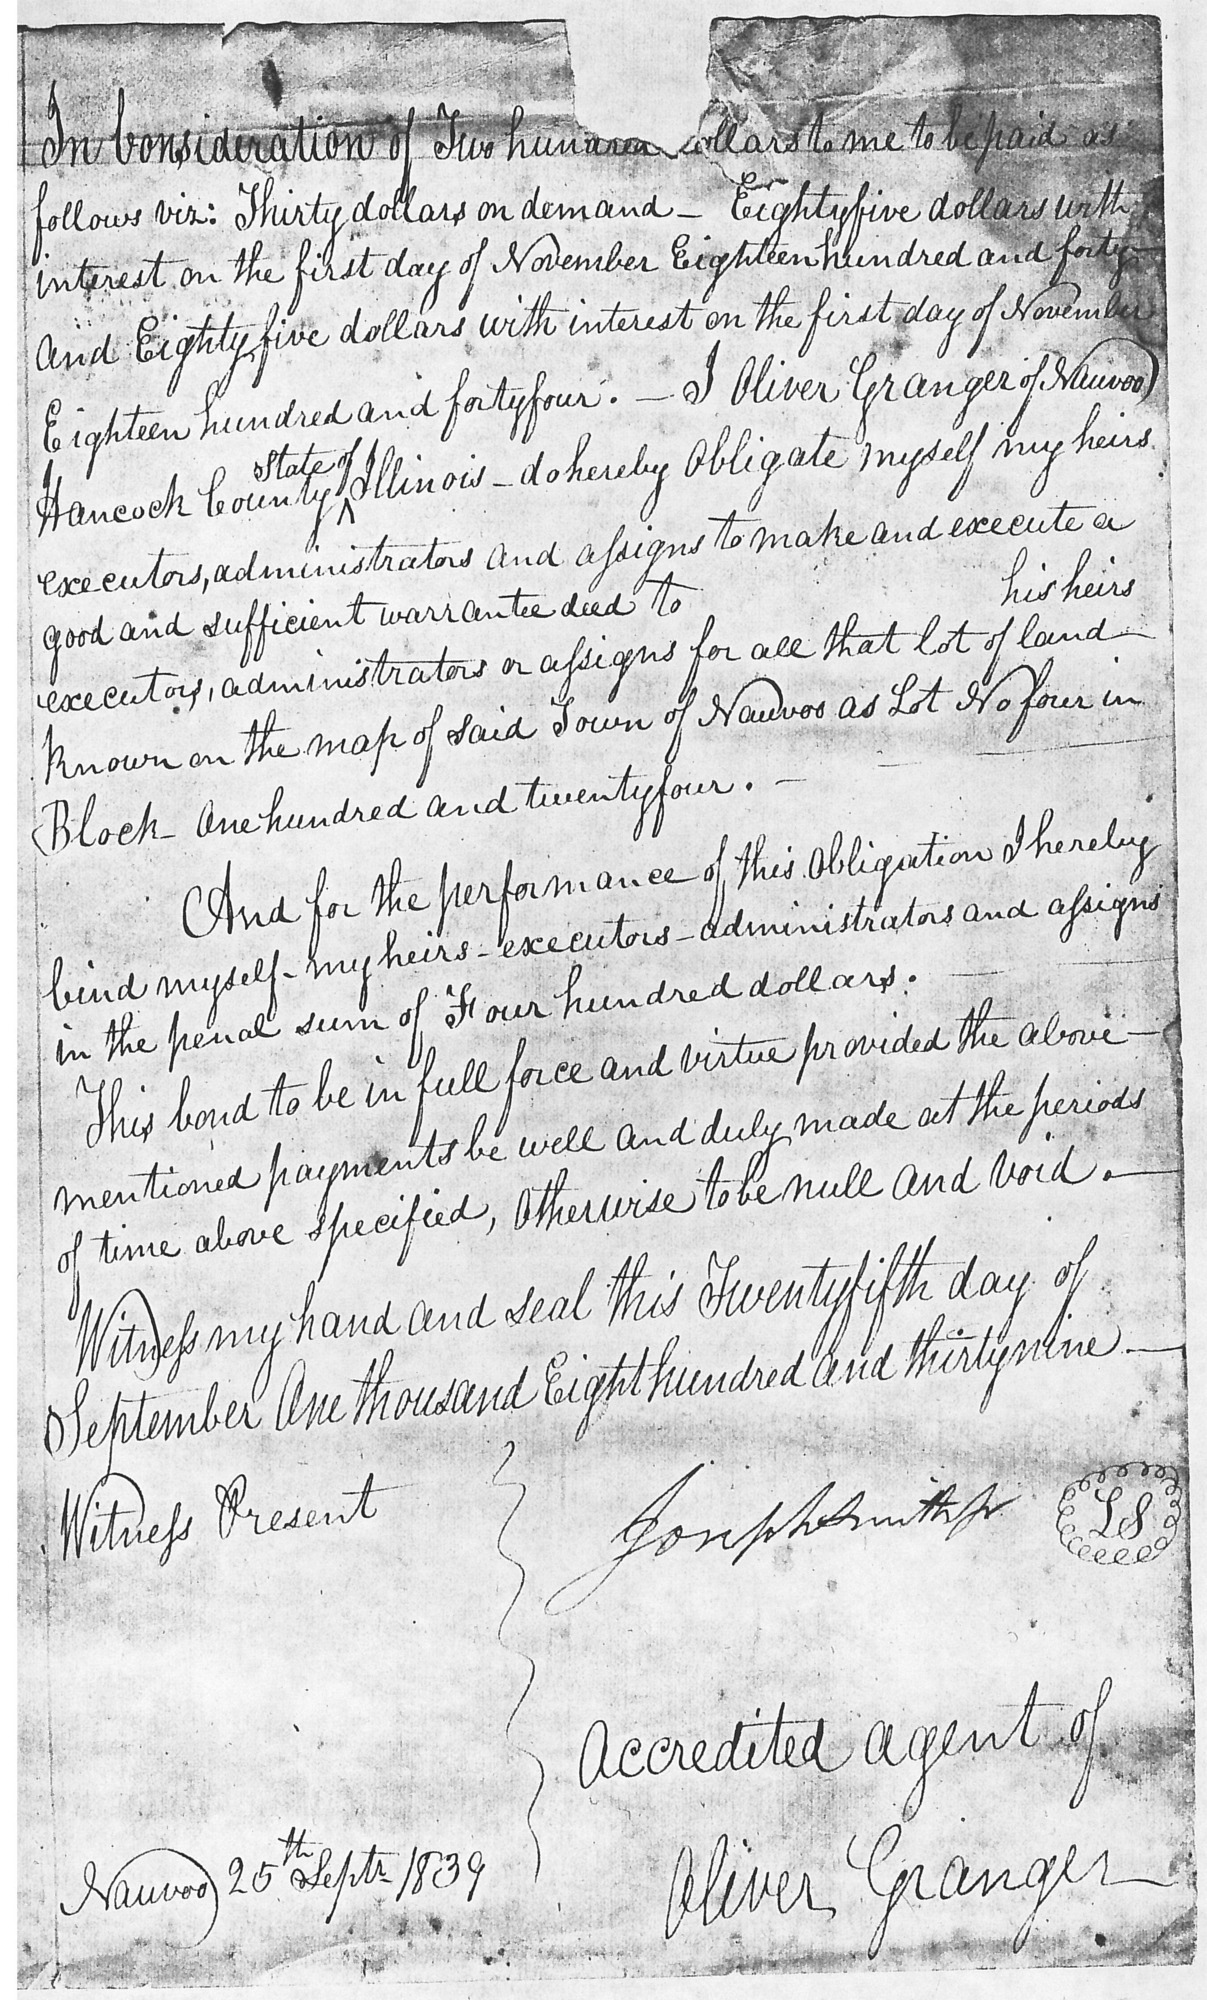 In Consideration of Two hundred dollars to me to be paid as
follows viz: Thirty dollars on demand – Eightyfive dollars with
interest on the first day of November Eighteen hundred and forty–
and Eightyfive dollars with interest on the first day of November
Eighteen hundred and fortyfour. – I Oliver Granger of Nauvoo
State of
Hancock County ^ Illinois – do hereby Obligate myself my heirs
executors, administrators and assigns to make and execute a
good and sufficient warrantee deed to his heirs
executors, administrators or assigns for all that lot of land–
known on the map of said Town of Nauvoo as Lot No four in
Block – One hundred and twentyfour. –
And for the performance of this Obligation I hereby
bind myself – my heirs – executors – administrators and assigns
in the penal sum of Four hundred dollars. –
This bond to be in full force and virtue provided the above–
mentioned payments be well and duly made at the periods
of time above specified, Otherwise to be null and void. –
Witness my hand and seal this Twentyfifth day of
September One thousand Eight hundred and thirtynine –
Witness Present
Joseph Smith Jr
L S
Accredited agent of
Oliver Granger
Nauvoo 25th Septr 1839